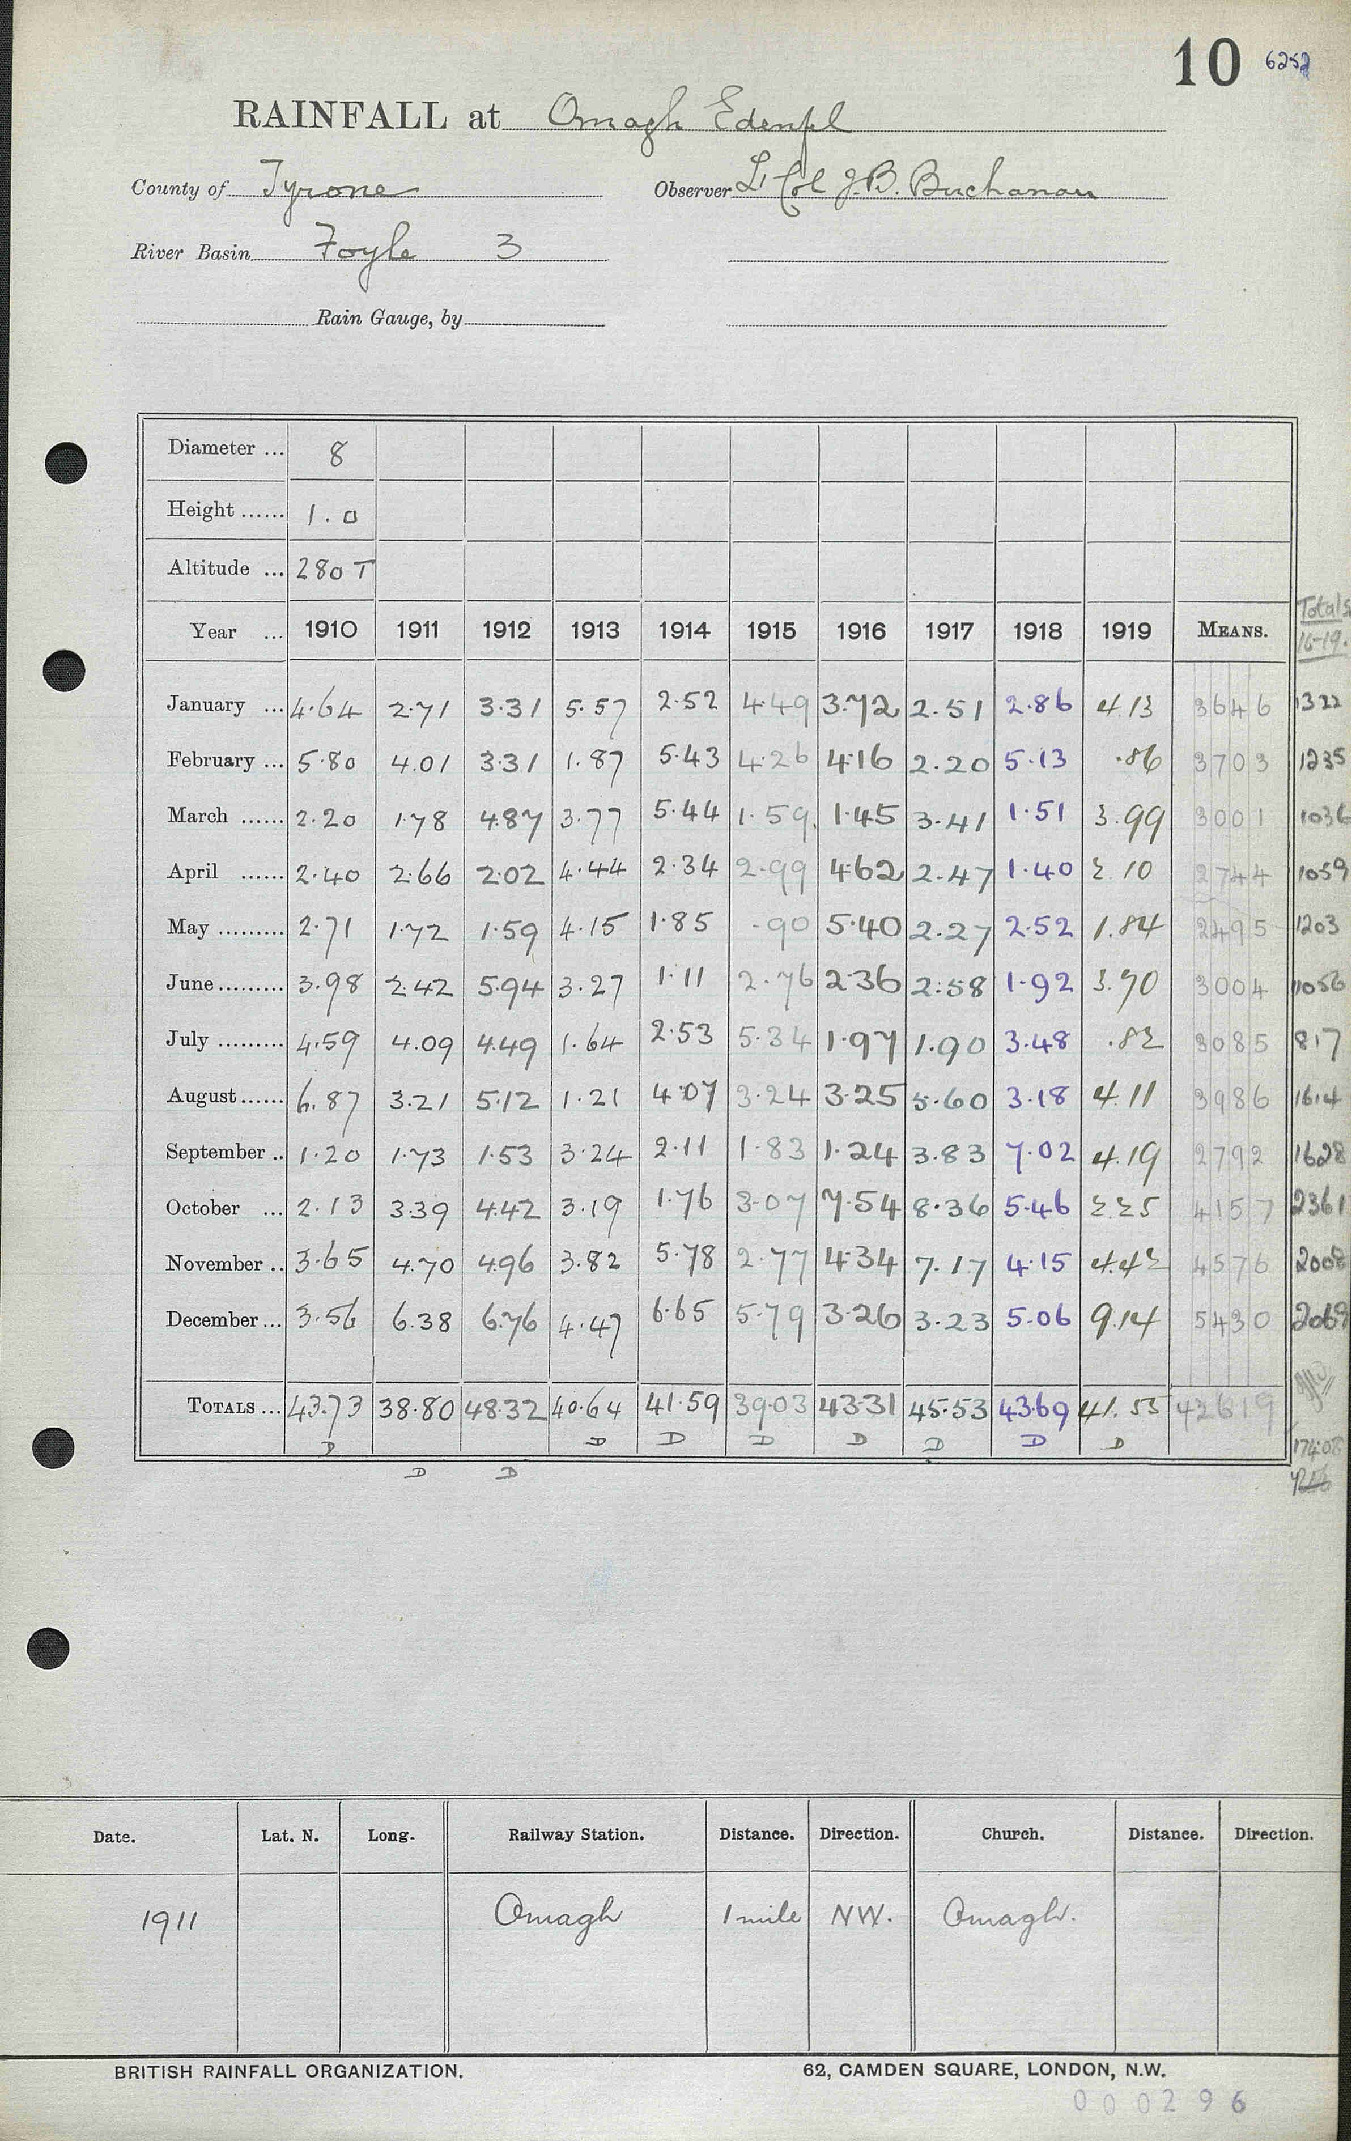 10 6252
RAINFALL at Omagh Edenfel
County of Tyrone Observer Lt Col J.B. Buchanan
River Basin Foyle 3
Rain Gauge, by
Diameter ... 8
Height ...... 1.0
Altitude ... 280 T
Totals
16-19.
Year ... 1910 1911 1912 1913 1914 1915 1916 1917 1918 1919 MEANS.
January ... 4.64 2.71 3.31 5.57 2.52 4.49 3.72 2.51 2.86 4.13 3646 1322
February ... 5.80 4.01 3.31 1.87 5.43 4.26 4.16 2.20 5.13 .86 3703 1235
March ...... 2.20 1.78 4.87 3.77 5.44 1.59 1.45 3.41 1.51 3.99 3001 1036
April ...... 2.40 2.66 2.02 4.44 2.34 2.99 4.62 2.47 1.40 2.10 2744 1059
May ......... 2.71 1.72 1.59 4.15 1.85 .90 5.40 2.27 2.52 1.84 2495 1203
June ......... 3.98 2.42 5.94 3.27 1.11 2.76 2.36 2.58 1.92 3.70 3004 1056
July ......... 4.59 4.09 4.49 1.64 2.53 5.34 1.97 1.90 3.48 .82 3085 817
August ...... 6.87 3.21 5.12 1.21 4.07 3.24 3.25 5.60 3.18 4.11 3986 1614
September .. 1.20 1.73 1.53 3.24 2.11 1.83 1.24 3.83 7.02 4.19 2792 1628
October ... 2.13 3.39 4.42 3.19 1.76 3.07 7.54 8.36 5.46 2.25 4157 2361
November .. 3.65 4.70 4.96 3.82 5.78 2.77 4.34 7.17 4.15 4.42 4576 2008
December ... 3.56 6.38 6.76 4.47 6.65 5.79 3.26 3.23 5.06 9.14 5430 2069
TOTALS ... 43.73 38.80 48.32 40.64 41.59 39.03 43.31 45.53 43.69 41.55 42619
D D D D D D D D 17408
D D
Date. Lat. N. Long. Railway Station. Distance. Direction. Church. Distance. Direction.
1911 Omagh 1 mile NW. Omagh.
BRITISH RAINFALL ORGANIZATION. 62, CAMDEN SQUARE, LONDON, N.W.
000296